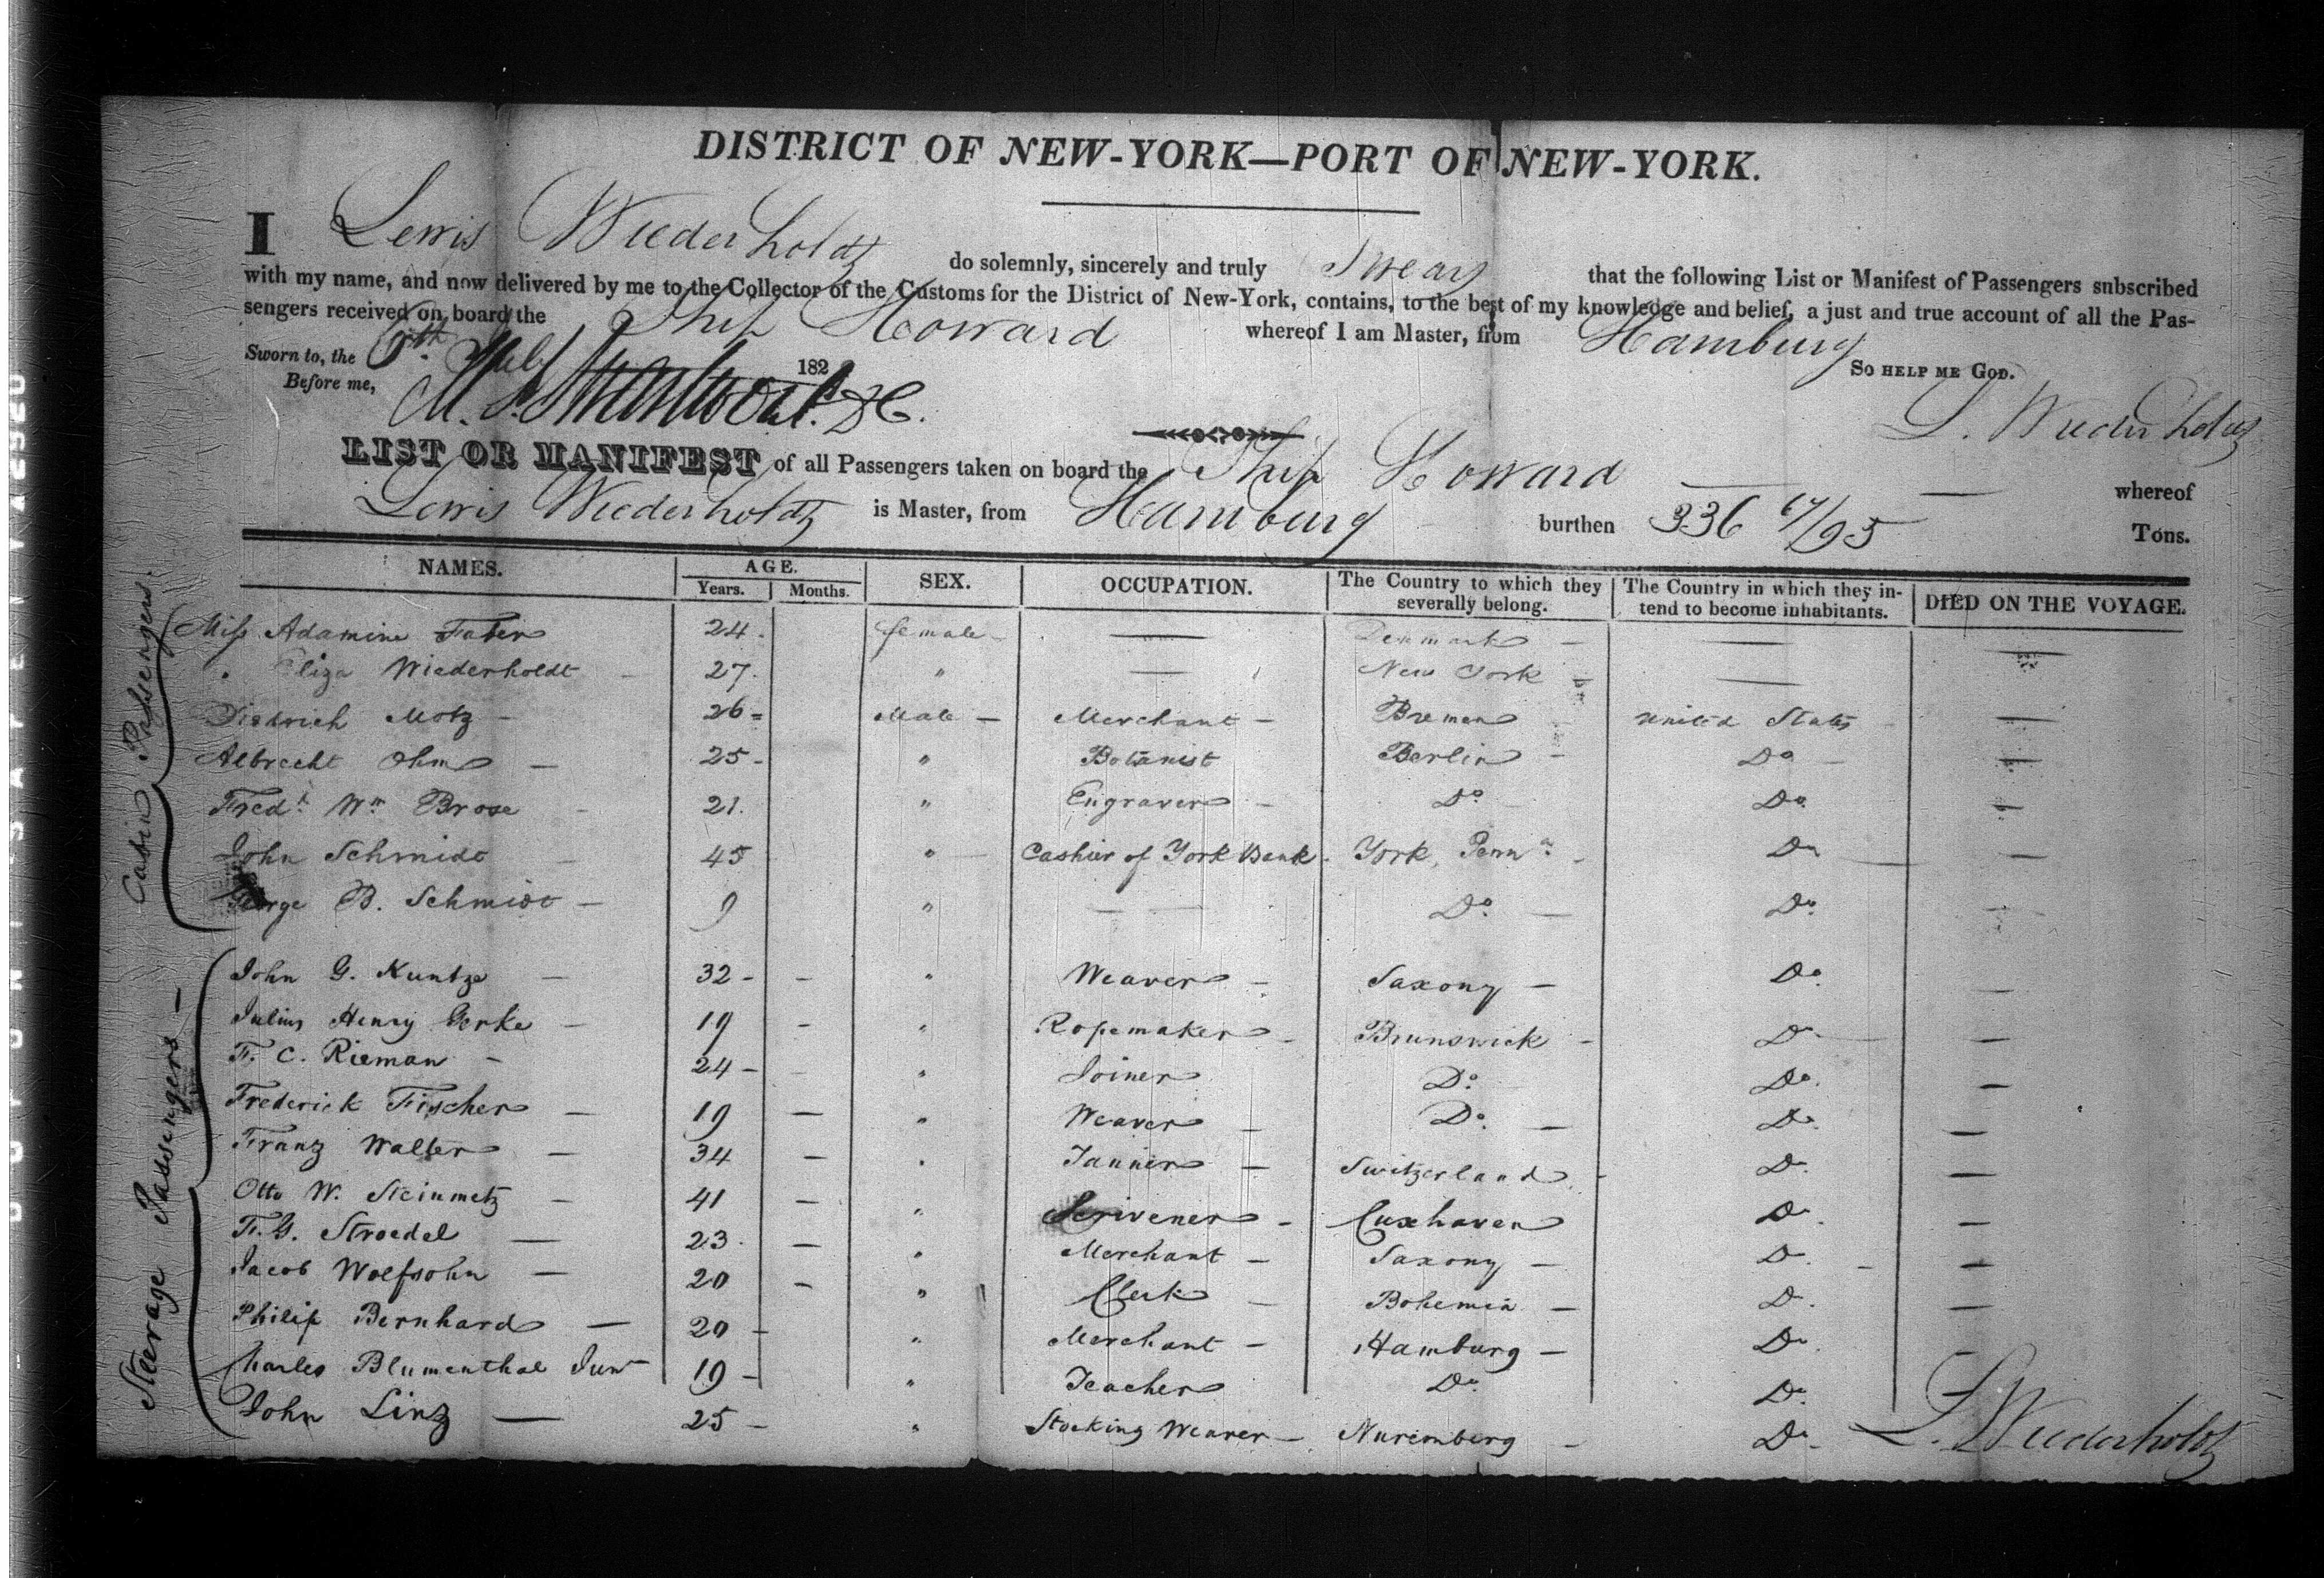 DISTRICT OF NEW-YORK—PORT OF NEW-YORK.
I Lewis Wiederholdt do solemnly, sincerely and truly Swear that the following List or Manifest of Passengers snbscribed
with my name, and now delivered by me to the Collector of the Customs for the District of New-York, contains, to the best of my knowledge and belief, a just and true account of all the Pas-
sengers received on board the Ship Howard whereof I am Master, from Hamburg
Sworn to, the 182 So HELP ME GOD.
Before me,
L. Wiederholdt
LIST OR MANIFEST of all Passengers taken on board the Ship Howard — — whereof
Lewis Wiederholdt is Master, from Hamburg burthen 336 /95 Tons.
NAMES. AGE. Years. Months. SEX. OCCUPATION. The Country to which they severally belong. The Country in which they in-tend to become inhabitants. DIED ON THE VOYAGE.
Cabin Passengers.
Miss Adamine Faber 24. female — — Denmark — — —
" Eliza Wiederholdt — 27. " — New York — — —
Diedrich Motz — 26 = Male — Merchant — Bremen United States —
Albrecht Ohm — 25 - " Botanist Berlin — Do —
Fredk. Wm Brose 21. " Engraver — Do. Do. —
John Schmidt 45 " — Cashier of York Bank. York, Penna. — Do —
George B. Schmidt — 9 " — — Do. — Do. —
Steerage Passengers —
John G. Kuntze — 32 - - " Weaver — Saxony — Do. —
Julius Henry Gerke — 19 - " Ropemaker — Brunswick — Do —
F. C. Rieman — 24 - - " Joiner Do. Do. —
Frederick Fischer — 19 — " Weaver — Do. — Do. —
Franz Walter — 34 — " Tanner — Switzerland. - Do. —
Otto W. Steinmetz — 41 — " Scrivener — Cuxhaven Do. —
F. G. Stroedel — 23. — " Merchant — Saxony — Do. —
Jacob Wolfsohn — 20 - " Clerk — Bohemia — Do. —
Philip Bernhard — 20 - " Merchant — Hamburg — Do. —
Charles Blumenthal Junr 19 - " Teacher Do. Do.
John Linz — 25 - " Stocking Weaver — Nuremberg — Do. -
L. Wiederholdt